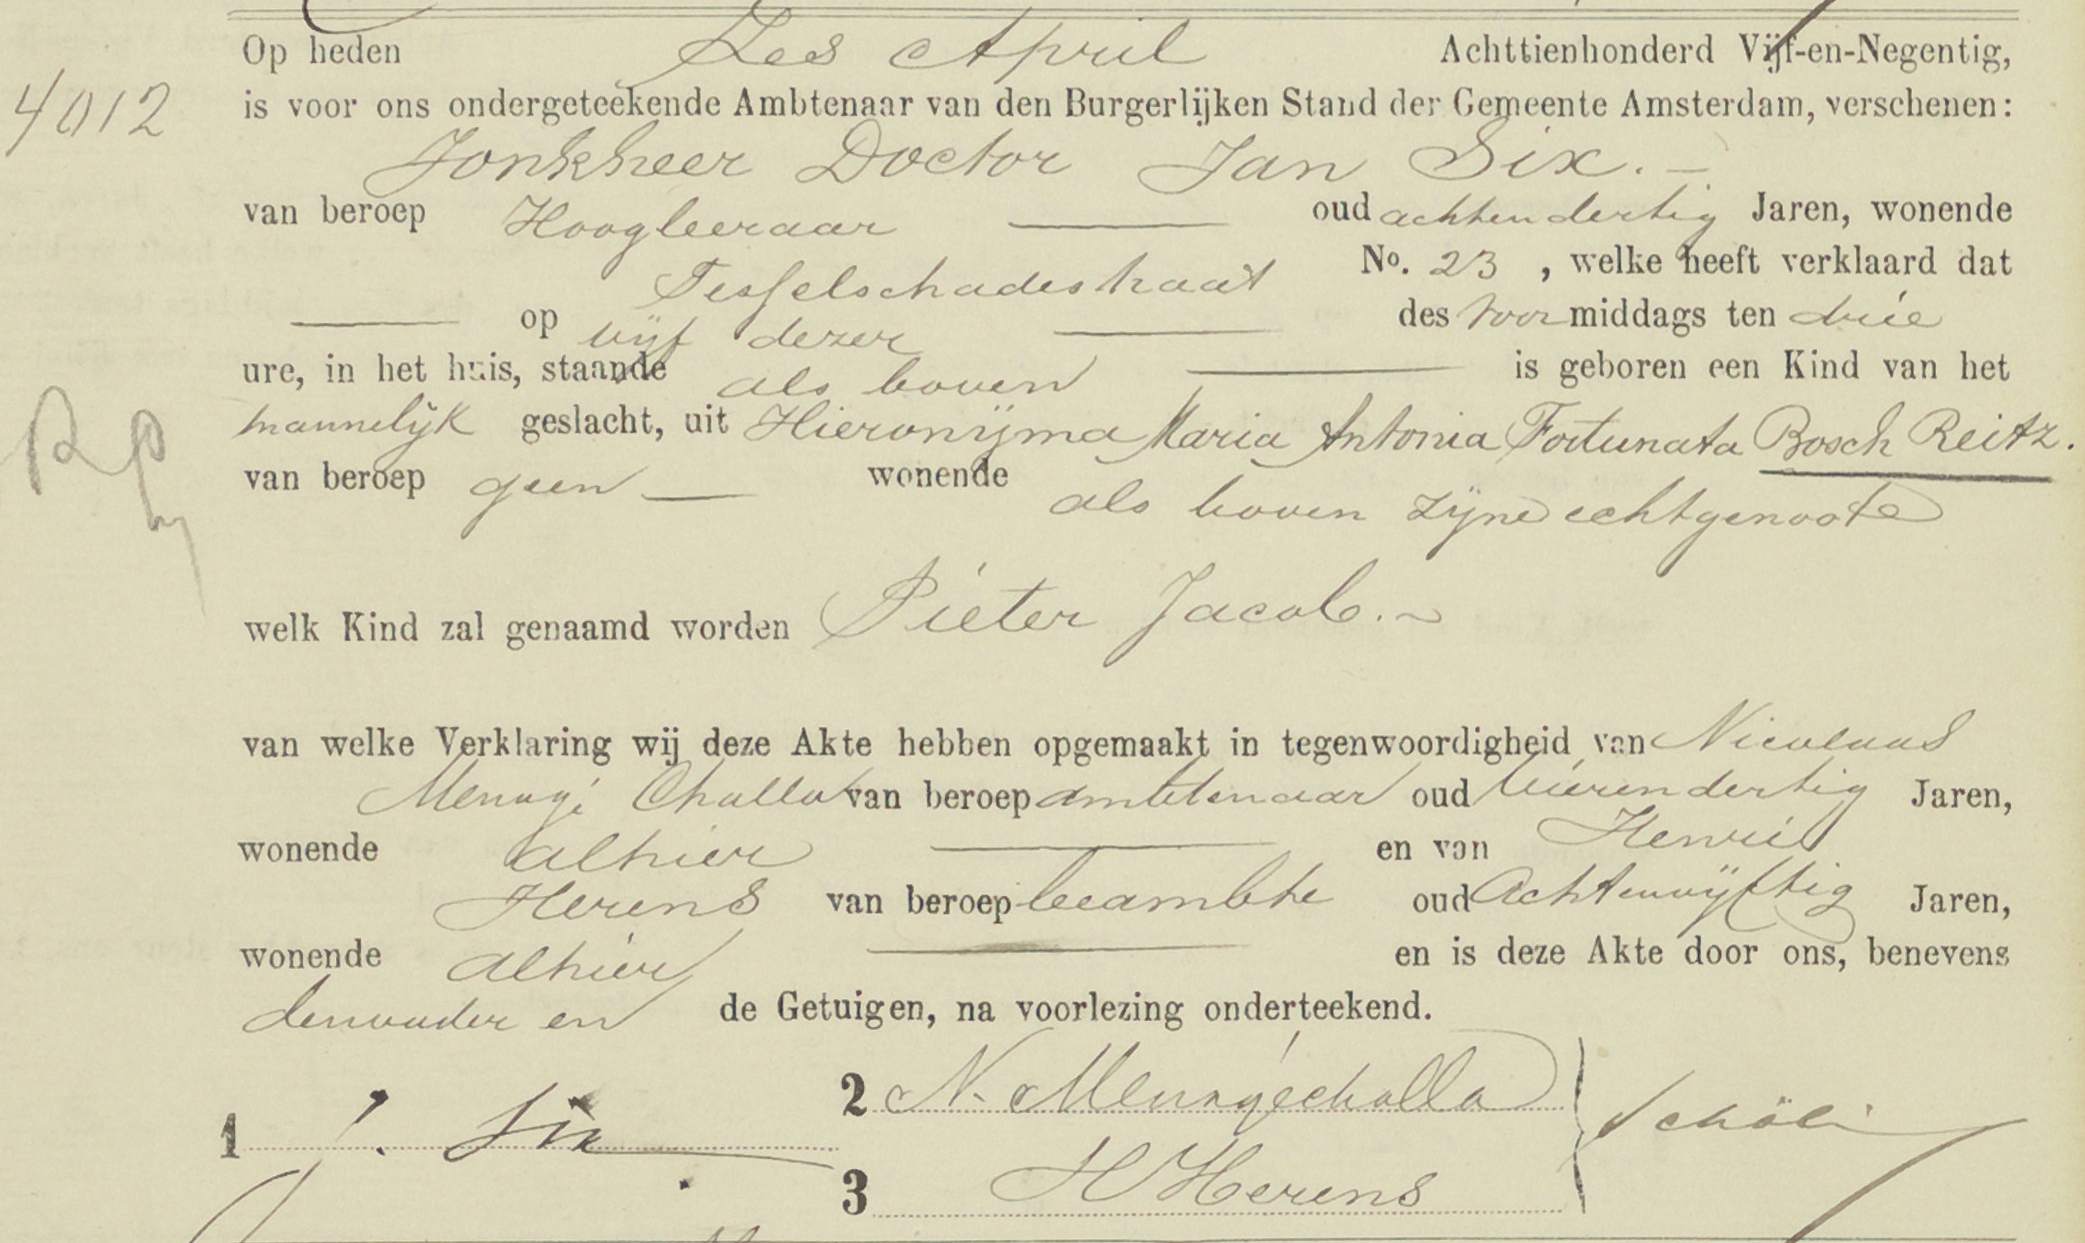 Op heden Zes April Achttienhonderd Vijf-en-Negentig,
4012
is voor ons ondergeteekende Ambtenaar van den Burgerlijken Stand der Gemeente Amsterdam, verschenen:
Jonkheer Doctor Jan Six. —
van beroep Hoogleeraar — oud achtendertig Jaren, wonende
Tesselschadestraat No. 23 , welke heeft verklaard dat
— op vijf dezer — des voormiddags ten drie
ure, in het huis, staande als boven — is geboren een Kind van het
mannelijk geslacht, uit Hieronijma Maria Antonia Fortunata Bosch Reitz.
van beroep geen — wonende als boven zijne echtgenoote
welk Kind zal genaamd worden Pieter Jacob. ~
van welke Verklaring wij deze Akte hebben opgemaakt in tegenwoordigheid van Nicolaas
Menagé Challa van beroep ambtenaar oud vierendertig Jaren,
wonende alhier — en van Henri
Herens van beroep beambte oud Achtenvijftig Jaren,
wonende alhier — en is deze Akte door ons, benevens
den vader en de Getuigen, na voorlezing onderteekend.
1 J. Six
2 N. Menagé challa
3 H Herens